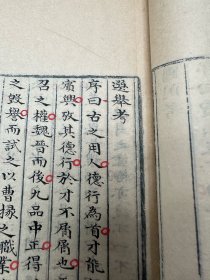 選舉考
序曰古之用人德行爲首才能
賓興攷其德行於才不屑屑也
召之權魏晉而後九品中正得
之毀譽而試之以曹掾之職業